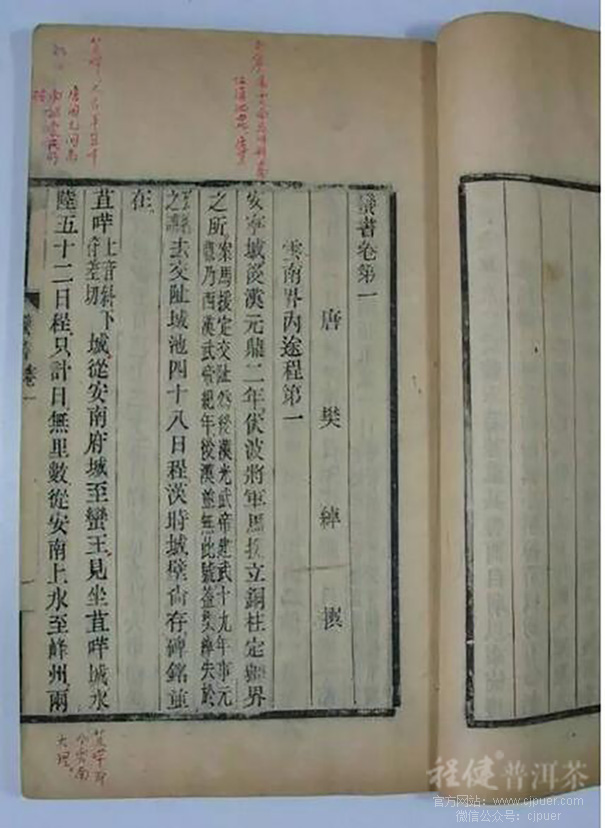 蠻書卷第一
唐 樊 綽 撰
雲南界內途程第一
安寧城後漢元鼎二年伏波將軍馬援立銅柱定疆界
之所 案馬援定交阯為後漢光武帝建武十九年事元
鼎乃西漢武帝紀年後漢並無此號蓋樊綽失於
去交阯城池四十八日程漢時城壁尚存碑銘並
在
苴咩 上音斜下
符差切 城從安南府城至蠻王見坐苴咩城水
陸五十二日程只計日無里數從安南上水至峰州兩
蠻書卷一
苴咩即
今雲南
大理
程健普洱茶
官方网站：www.cjpuer.com
微信公众号：cjpuer